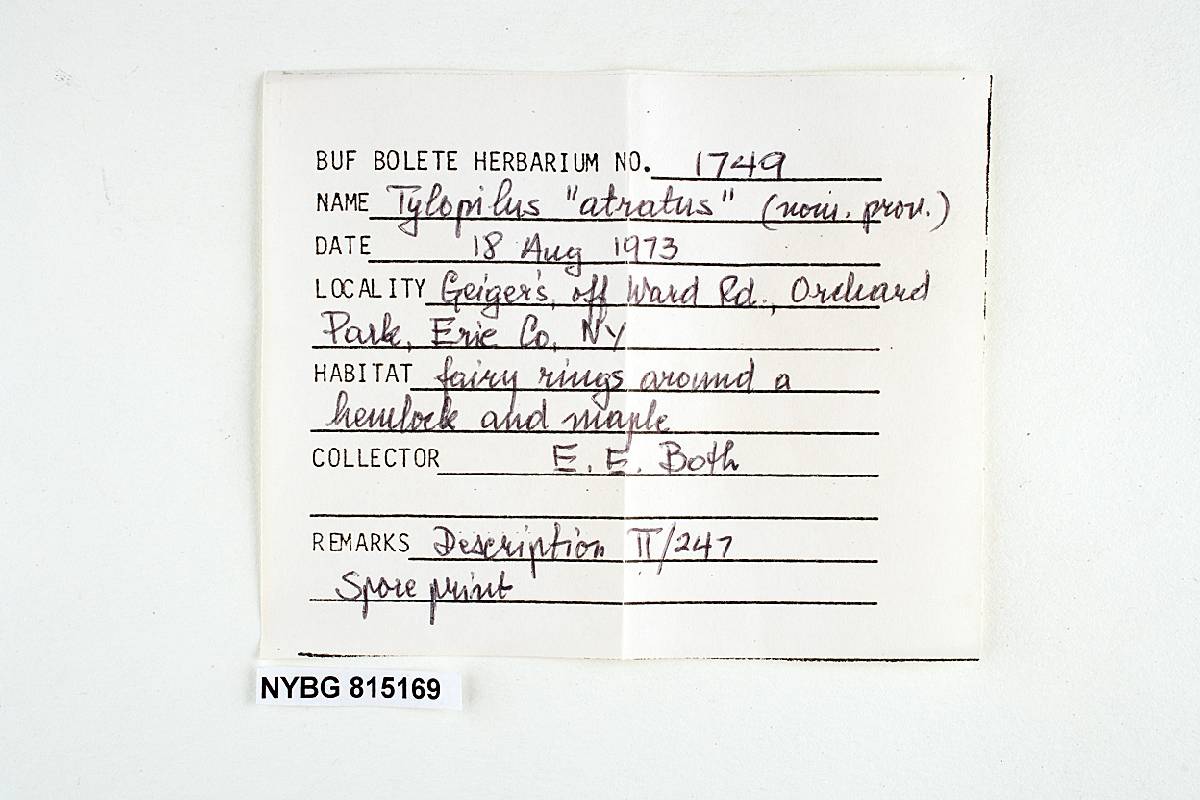 BUF BOLETE HERBARIUM NO. 1749
NAME Tylopilus "atratus" (nom. prov.)
DATE 18 Aug 1973
LOCALITY Geiger's, off Ward Rd., Orchard
Park, Erie Co, NY
HABITAT fairy rings around a
hemlock and maple
COLLECTOR E. E. Both
REMARKS Description II/247
Spore print
NYBG 815169